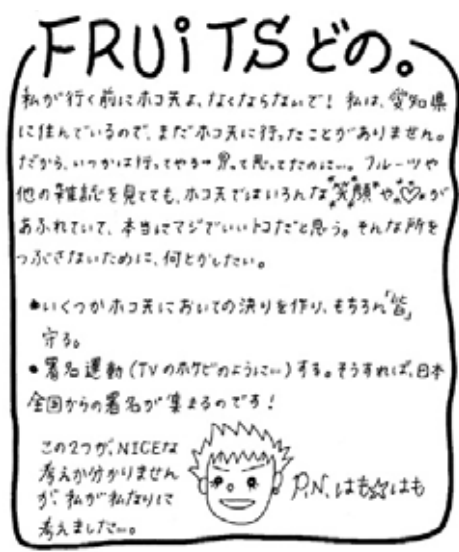 FRUiTSどの。
私が行く前にホコ天よ、なくならないで! 私は、愛知県
に住んでいるので、まだホコ天に行ったことがありません。
だから、いつかは行ってやるー!って思ってたのに…。フルーツや
他の雑誌を見てても、ホコ天ではいろんな"笑顔"や"♡"が
あふれていて、本当にマジでいいトコだと思う。そんな所を
つぶさないために、何とかしたい。
●いくつかホコ天においての決りを作り、もちろん「皆」
守る。
●署名運動(TVのホケビのように…)する。そうすれば、日本
全国からの署名が集まるのです!
この2つが、NICEな
考えか分かりません
が、私が私なりに
考えました…。
P.N. はも☆はも